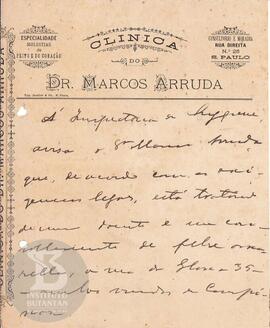 ESPECIALIDADE
MOLESTIAS
DE
PEITO E DO CORAÇÃO
CLINICA
DO
DR. MARCOS ARRUDA
CONSULTORIO E MORADA
RUA DIREITA
N.º 26
S. PAULO
Á Inspectoria de Hygiene
avisa o Dr Marcos Arruda
que, de accordo com as exi-
gencias legaes, está tratando
de um doente
de febre ama-
rella, a rua da Gloria 35
vindo de Campi-
nas
INSTITUTO
BUTANTAN